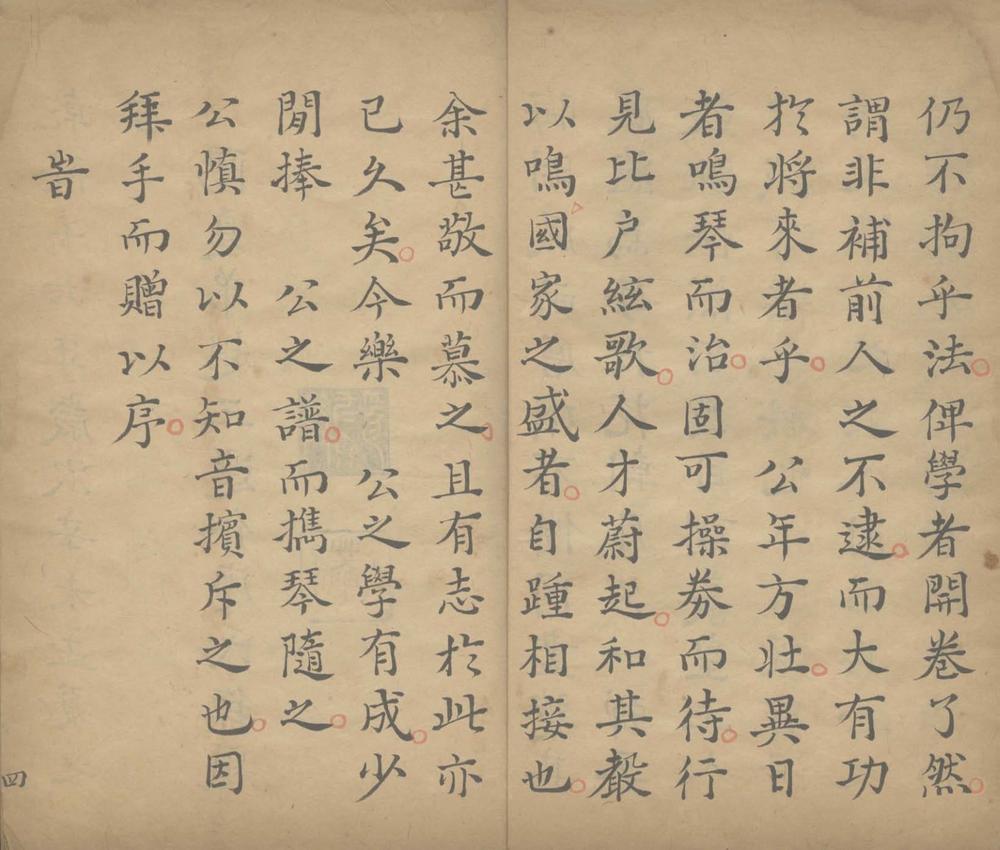 仍不拘乎法。俾學者開卷了然。
謂非補前人之不逮。而大有功
於將來者乎。　公年方壯。異日
者鳴琴而治。固可操券而待。行
見比户絃歌。人才蔚起。和其聲
以鳴國家之盛者。自踵相接也。
余甚敬而慕之。且有志於此亦
已久矣。今樂　公之學有成。少
閒捧　公之譜。而攜琴隨之。
公慎勿以不知音擯斥之也。因
拜手而贈以序。
旹
四